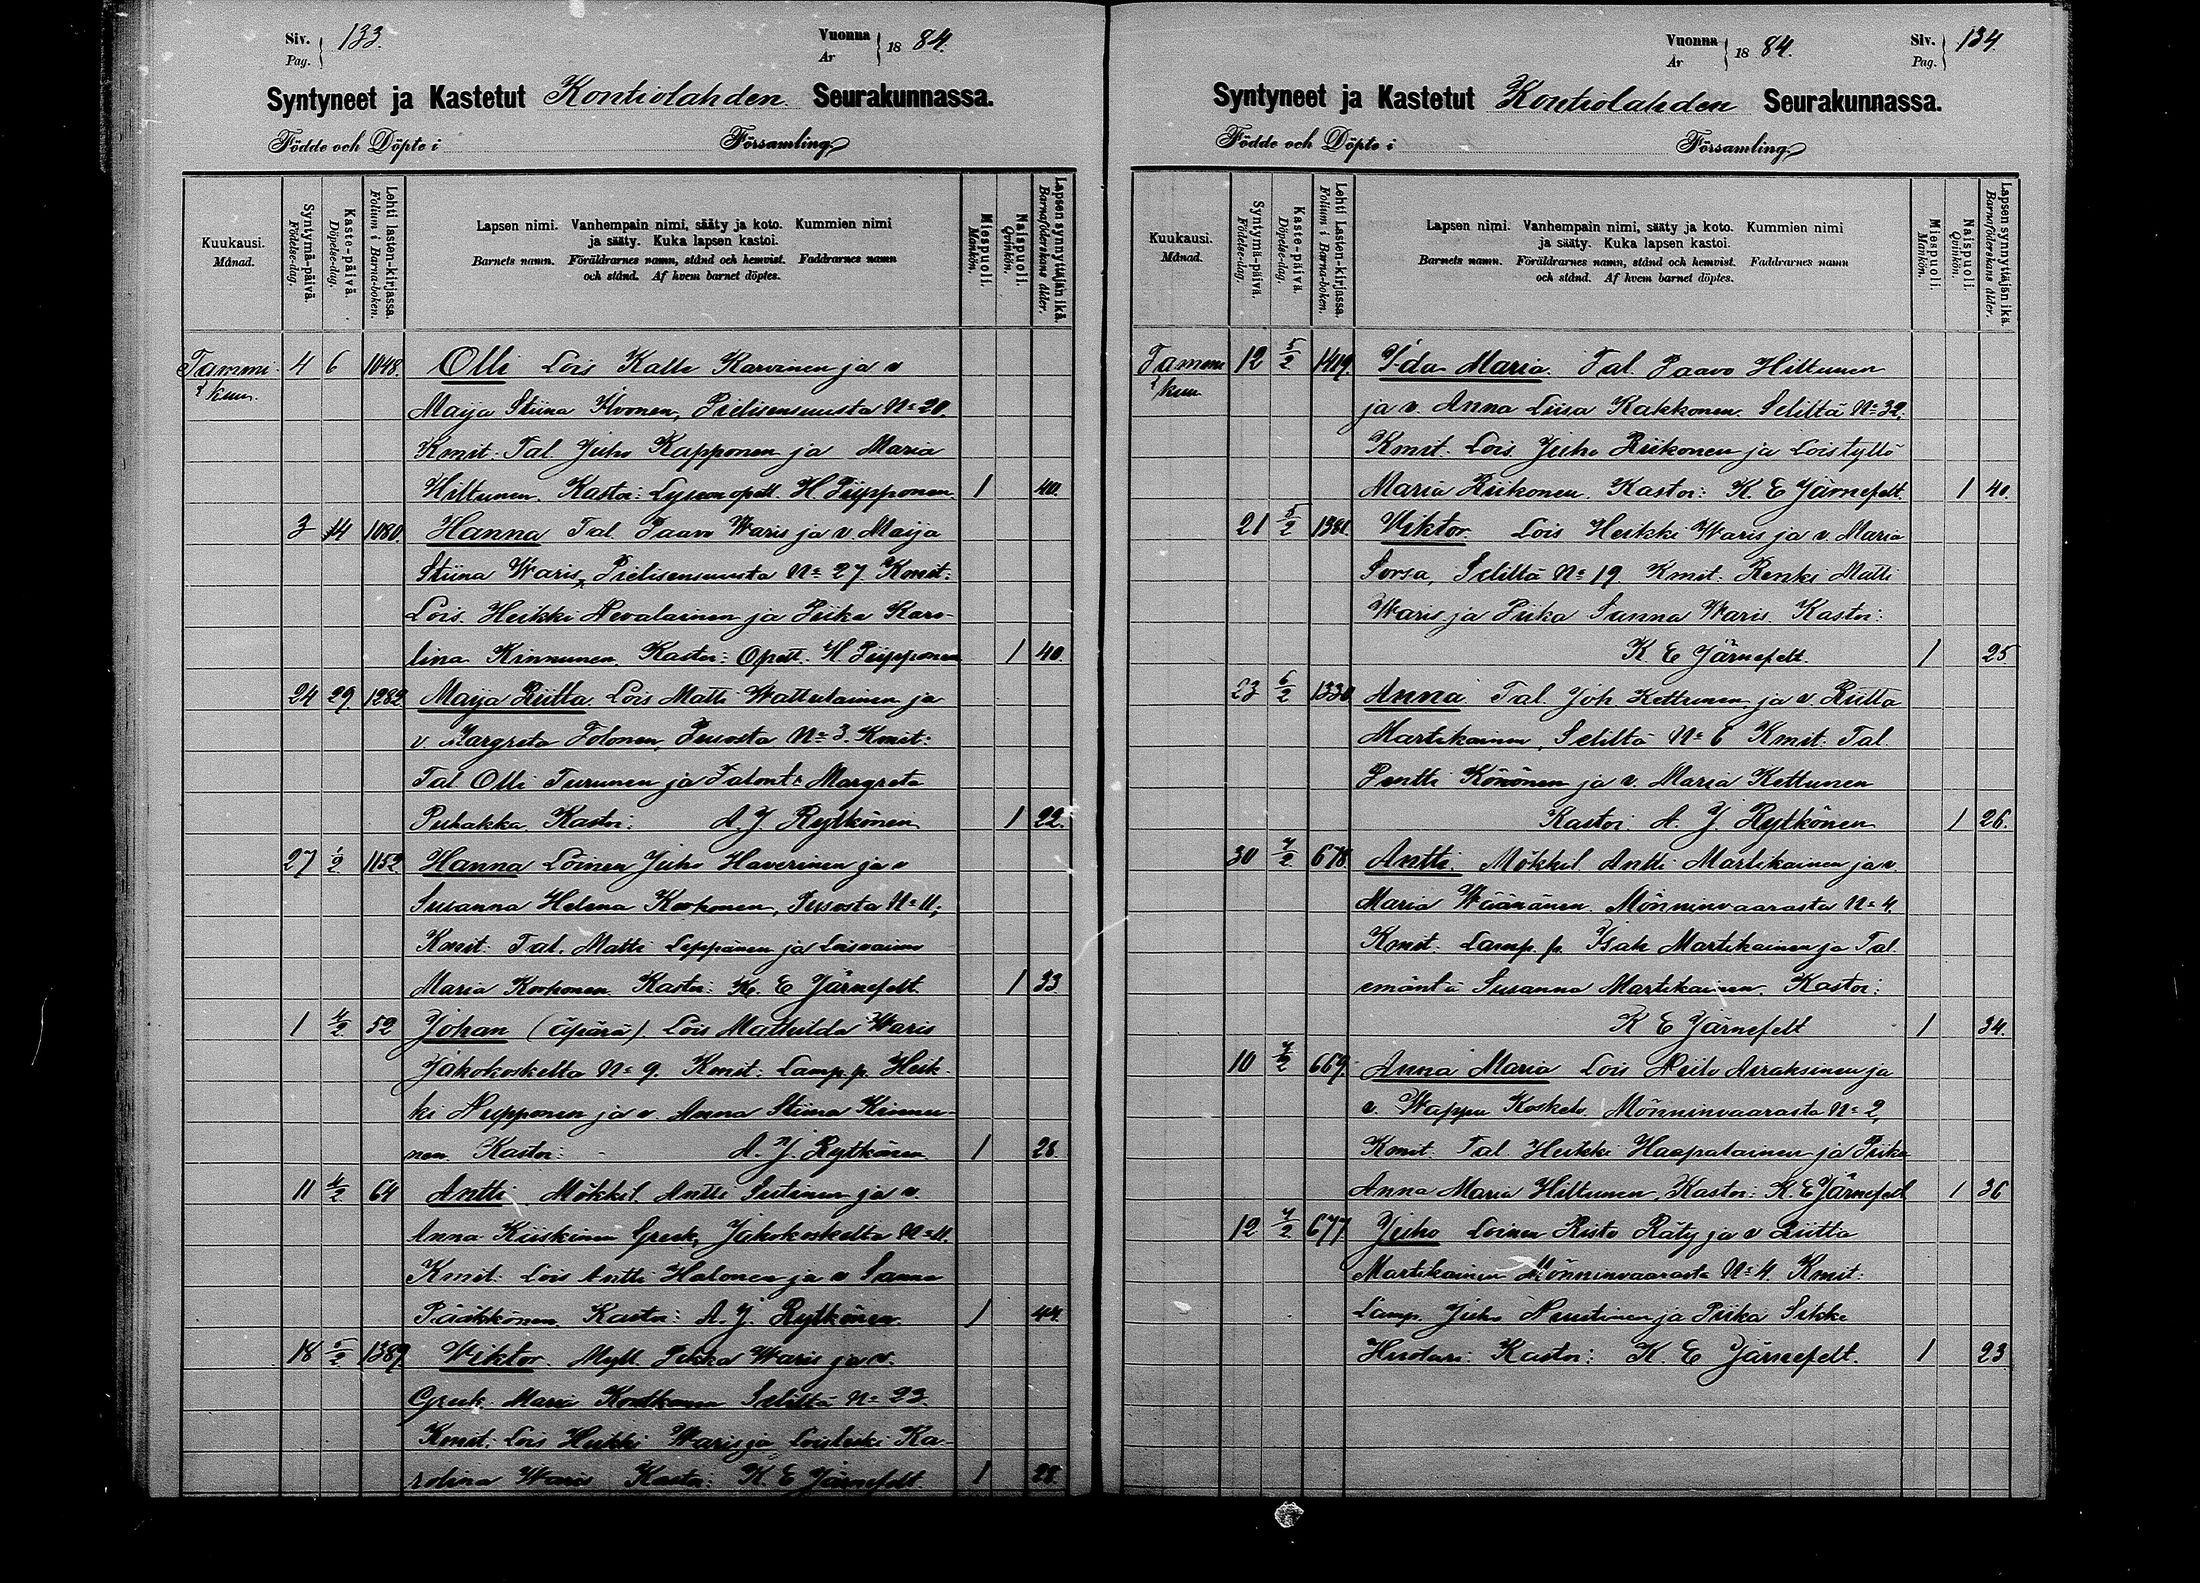 Siv. 133.
Pag.
Vuonna 1884.
År
Syntyneet ja Kastetut Kontiolahden Seurakunnassa.
Födde och Döpte i Församling
Kuukausi.
Månad.
Syntymä-päivä.
Födelse-dag.
Kaste-päivä.
Döpelse-dag.
Lehti lasten-kirjassa.
Folium i Barna-boken.
Lapsen nimi. Vanhempain nimi, sääty ja koto. Kummien nimi
ja sääty. Kuka lapsen kastoi.
Barnets namn. Föräldrarnes namn, stånd och hemvist. Faddrarnes namn
och stånd. Af hvem barnet döptes.
Miespuoli.
Mankön.
Naispuoli.
Qvinkön.
Lapsen synnyttäjän ikä.
Barnaföderskans ålder.
Tammi- 4 6 1048. Olli Lois Kalle Karvinen ja v
kuu. Maija Stiina Ikonen, Pielisensuusta No 20.
Kmit. Tal. Juho Kapponen ja Maria
Hiltunen. Kastoi: Lyseon opett. H. Piipponen 1 40.
3 14 1080. Hanna Tal. Paavo Waris ja v. Maija
Stiina Waris, Pielisensuusta No 27. Kmit:
Lois. Heikki Nevalainen ja Piika Karo-
lina Kinnunen. Kastoi: Opett. H Piipponen 1 40.
24 29 1282. Maija Riitta. Lois Matti Wattulainen ja
v. Margreta Tolonen, Puсosta No 3. Kmit:
Tal Olli Turunen ja Margreta
Puhakka. Kastoi: A. J. Rytkönen 1 22.
27 1/2 1152 Hanna Loinen Juho Haverinen ja v
Susanna Helena Korhonen, No 11;
Kmit. Tal. Matti Leppänen ja Loisvaimo
Maria Korhonen. Kastoi: K. E Järnefelt. 1 33.
1 4/2 52 Johan (äpärä). Lois Mathilda Waris
Jakokoskelta No 9. Kmit: Lamp. p. Heik-
ki Nupponen ja v. Anna Stiina Kinnu-
nen. Kastoi: A. J. Rytkönen 1 28
11 4/2 64 Antti Mökkil. Antti Sutinen ja v.
Anna Kiiskinen Greek. Jakokoskelta No 11.
Kmit: Lois Antti Halonen ja v Sanna
Pääkkönen. Kastoi: A. J. Rytkönen. 1 44.
18 5/2 1389 Wiktor. Mylt. Pekka Waris ja v.
Greek. Maria Seliltä No 23.
Kmit: Lois Heikki Waris ja Loisleski Ka-
rolina Waris Kastoi: K. E Järnefelt. 1 28.
Vuonna 1884.
År
Siv. 134
Pag.
Syntyneet ja Kastetut Kontiolahden Seurakunnassa.
Födde och Döpte i Församling
Kuukausi.
Månad.
Syntymä-päivä.
Födelse-dag.
Kaste-päivä.
Döpelse-dag.
Lehti Lasten-kirjassa.
Folium i Barna-boken.
Lapsen nimi. Vanhempain nimi, sääty ja koto. Kummien nimi
ja sääty. Kuka lapsen kastoi.
Barnets namn. Föräldrarnes namn, stånd och hemvist. Faddrarnes namn
och stånd. Af hvem barnet döptes.
Miespuoli.
Mankön.
Naispuoli.
Qvinkön.
Lapsen synnyttäjän ikä.
Barnaföderskans ålder.
Tammi 12 5/2 1419. Ida Maria. Tal. Paavo Hiltunen
kuu ja v. Anna Liisa Kakkonen. Seliltä No 32,
Kmit. Lois. Juho Riikonen ja Loistyttö
Maria Riikonen. Kastoi: K. E Järnefelt. 1 40.
21 5/2 1381. Wiktor. Lois Heikki Waris ja v. Maria
Sorsa, Seliltä No 19 Kmit. Renki Matti
Waris ja Piika Sanna Waris. Kastoi:
K E Järnefelt. 1 25
23 6/2 1330 Anna Tal. Joh Kettunen ja v. Riitta
Martikainen, Seliltä No 6 Kmit. Tal.
Pentti Könönen ja v. Maria Kettunen
Kastoi. A. J. Rytkönen 1 26.
30 7/2 678. Antti. Mökkil. Antti Martikainen ja v.
Maria Wäänänen. Mönninvaarasta No 4.
Kmit. Lamp. p. Isak Martikainen ja Tal.
emäntä Susanna Martikainen. Kastoi:
K E Järnefelt 1 34.
10 7/2 669. Anna Maria Lois Niilo Airaksinen ja
v. Wappu Koskelo. Mönninvaarasta No 2,
Kmit. Tal Heikki Haapalainen ja Piika
Anna Maria Hiltunen. Kastoi: K. E Järnefelt 1 36
12 7/2 677 Juho Loinen Risto Räty ja v Riitta
Martikainen Mönninvaarasta No 4. Kmit:
Lamp. Juho Nuutinen ja Piika Sikke
Huotari. Kastoi: K. E Järnefelt. 1 23